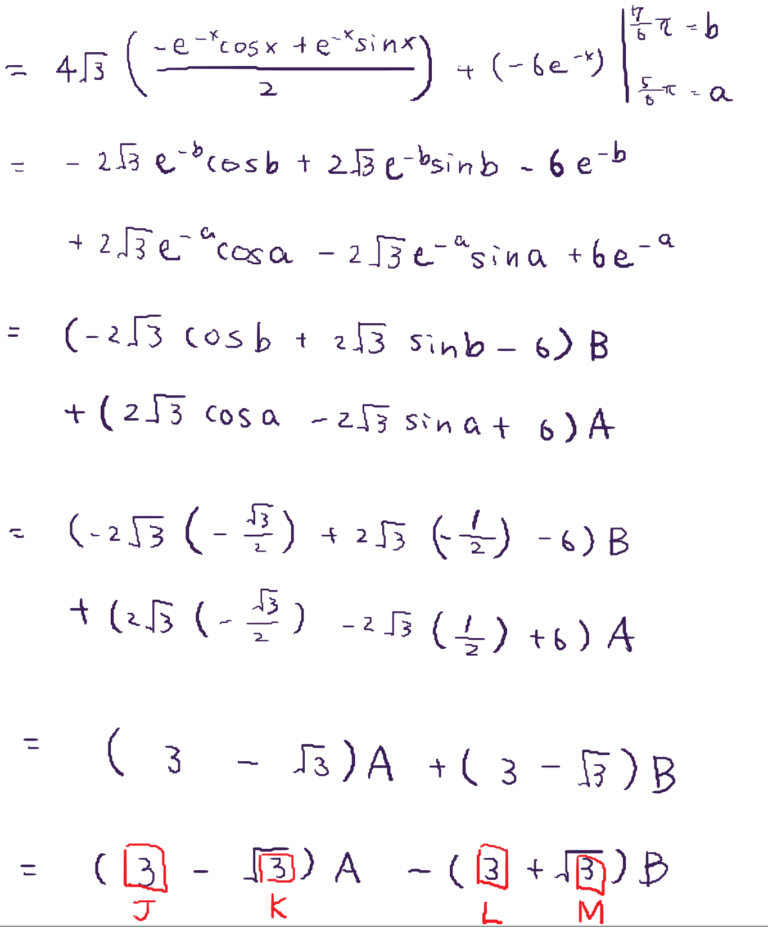 = 4√3 ( (-e^{-x}cosx + e^{-x}sinx) / 2 ) + (-6e^{-x}) |_{5/6 π = a}^{7/6 π = b}
= - 2√3 e^{-b}cosb + 2√3 e^{-b}sinb - 6e^{-b}
+ 2√3e^{-a}cosa - 2√3e^{-a}sina + 6e^{-a}
= (-2√3 cosb + 2√3 sinb - 6) B
+ (2√3 cosa - 2√3 sina + 6) A
= (-2√3 (-√3/2) + 2√3 (-1/2) - 6) B
+ (2√3 (-√3/2) - 2√3 (1/2) + 6) A
= (3 - √3) A + (3 - √3) B
= (3 - √3) A - (3 + √3) B
J K L M